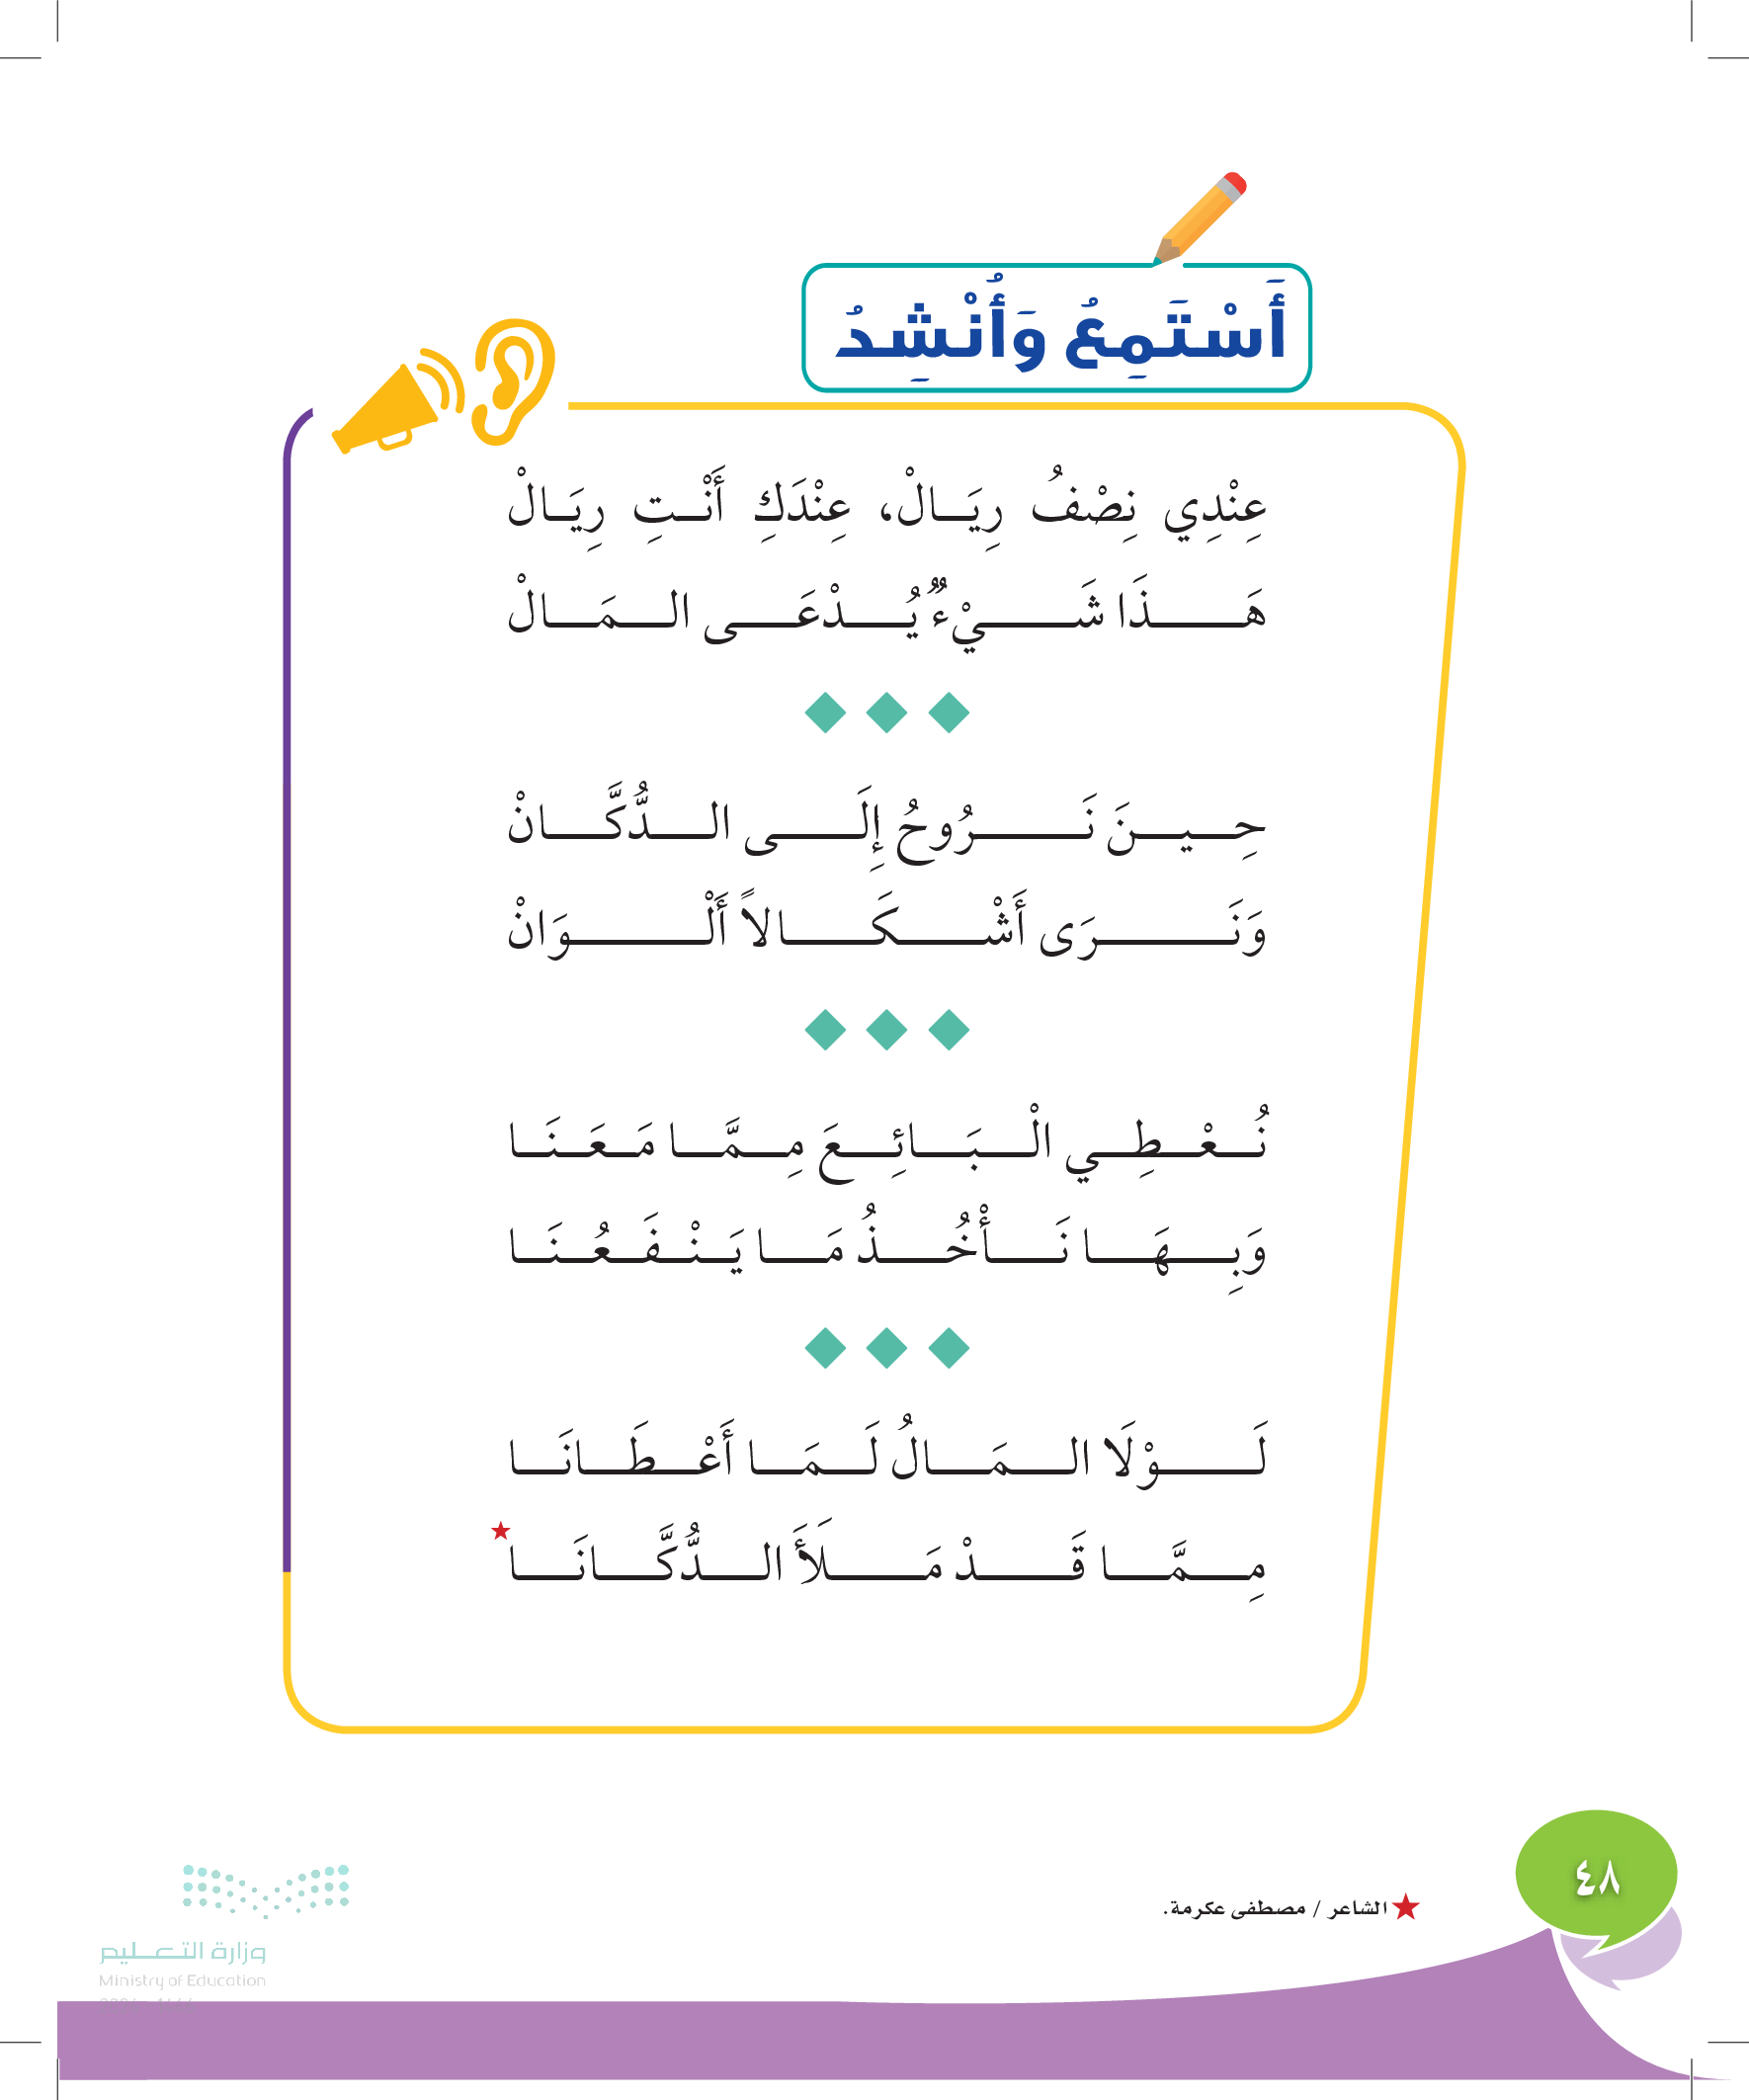 أَسْتَمِعُ وَأُنْشِدُ
عِنْدِي نِصْفُ رِيَالْ، عِنْدَكِ أَنْتِ رِيَالْ
هَذَا شَيْءٌ يُدْعَى المَالْ
حِينَ نَرُوحُ إِلَى الدُّكَّانْ
وَنَرَى أَشْكَالاً أَلْوَانْ
نُعْطِي الْبَائِعَ مِمَّا مَعَنَا
وَبِهَا نَأْخُذُ مَا يَنْفَعُنَا
لَوْلَا المَالُ لَمَا أَعْطَانَا
مِمَّا قَدْ مَلَأَ الدُّكَّانَا
الشاعر / مصطفى عكرمة.
٤٨
وزارة التعليم
Ministry of Education